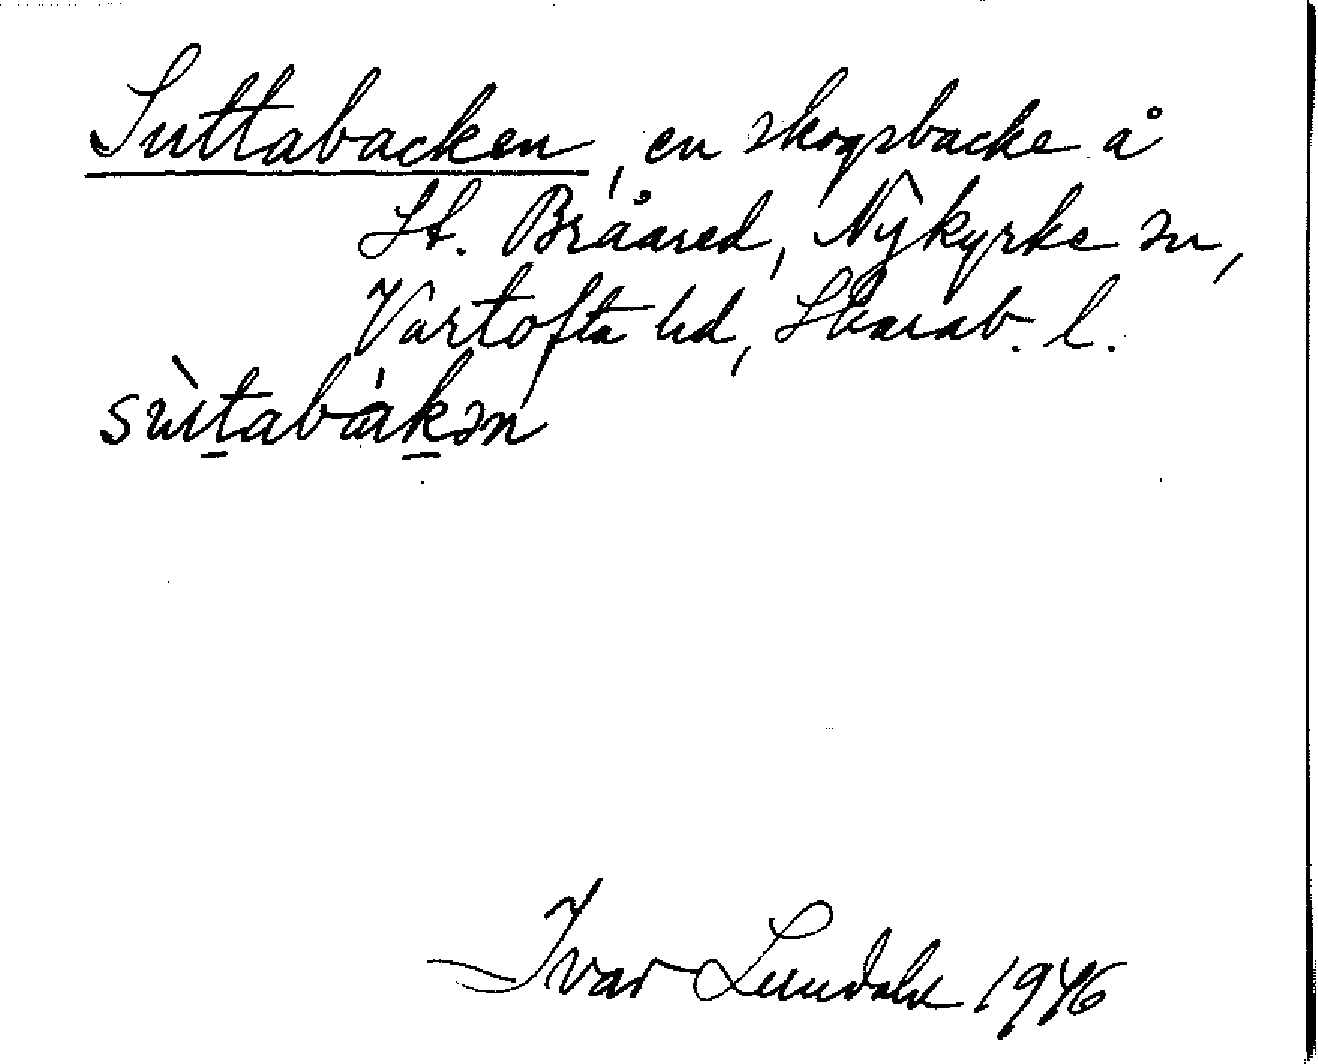 Suttabacken, en skogsbacke å
St. Bråared, Nykyrke sn,
Vartofta hd, Skarab. l.
sùtabákən
Ivar Lundahl 1946